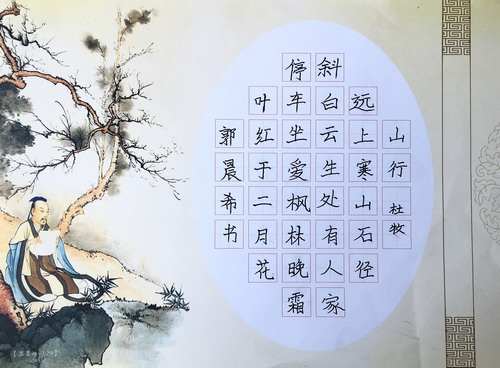 山行 杜牧
远上寒山石径
斜白云生处有人家
停车坐爱枫林晚霜
叶红于二月花
郭晨希书